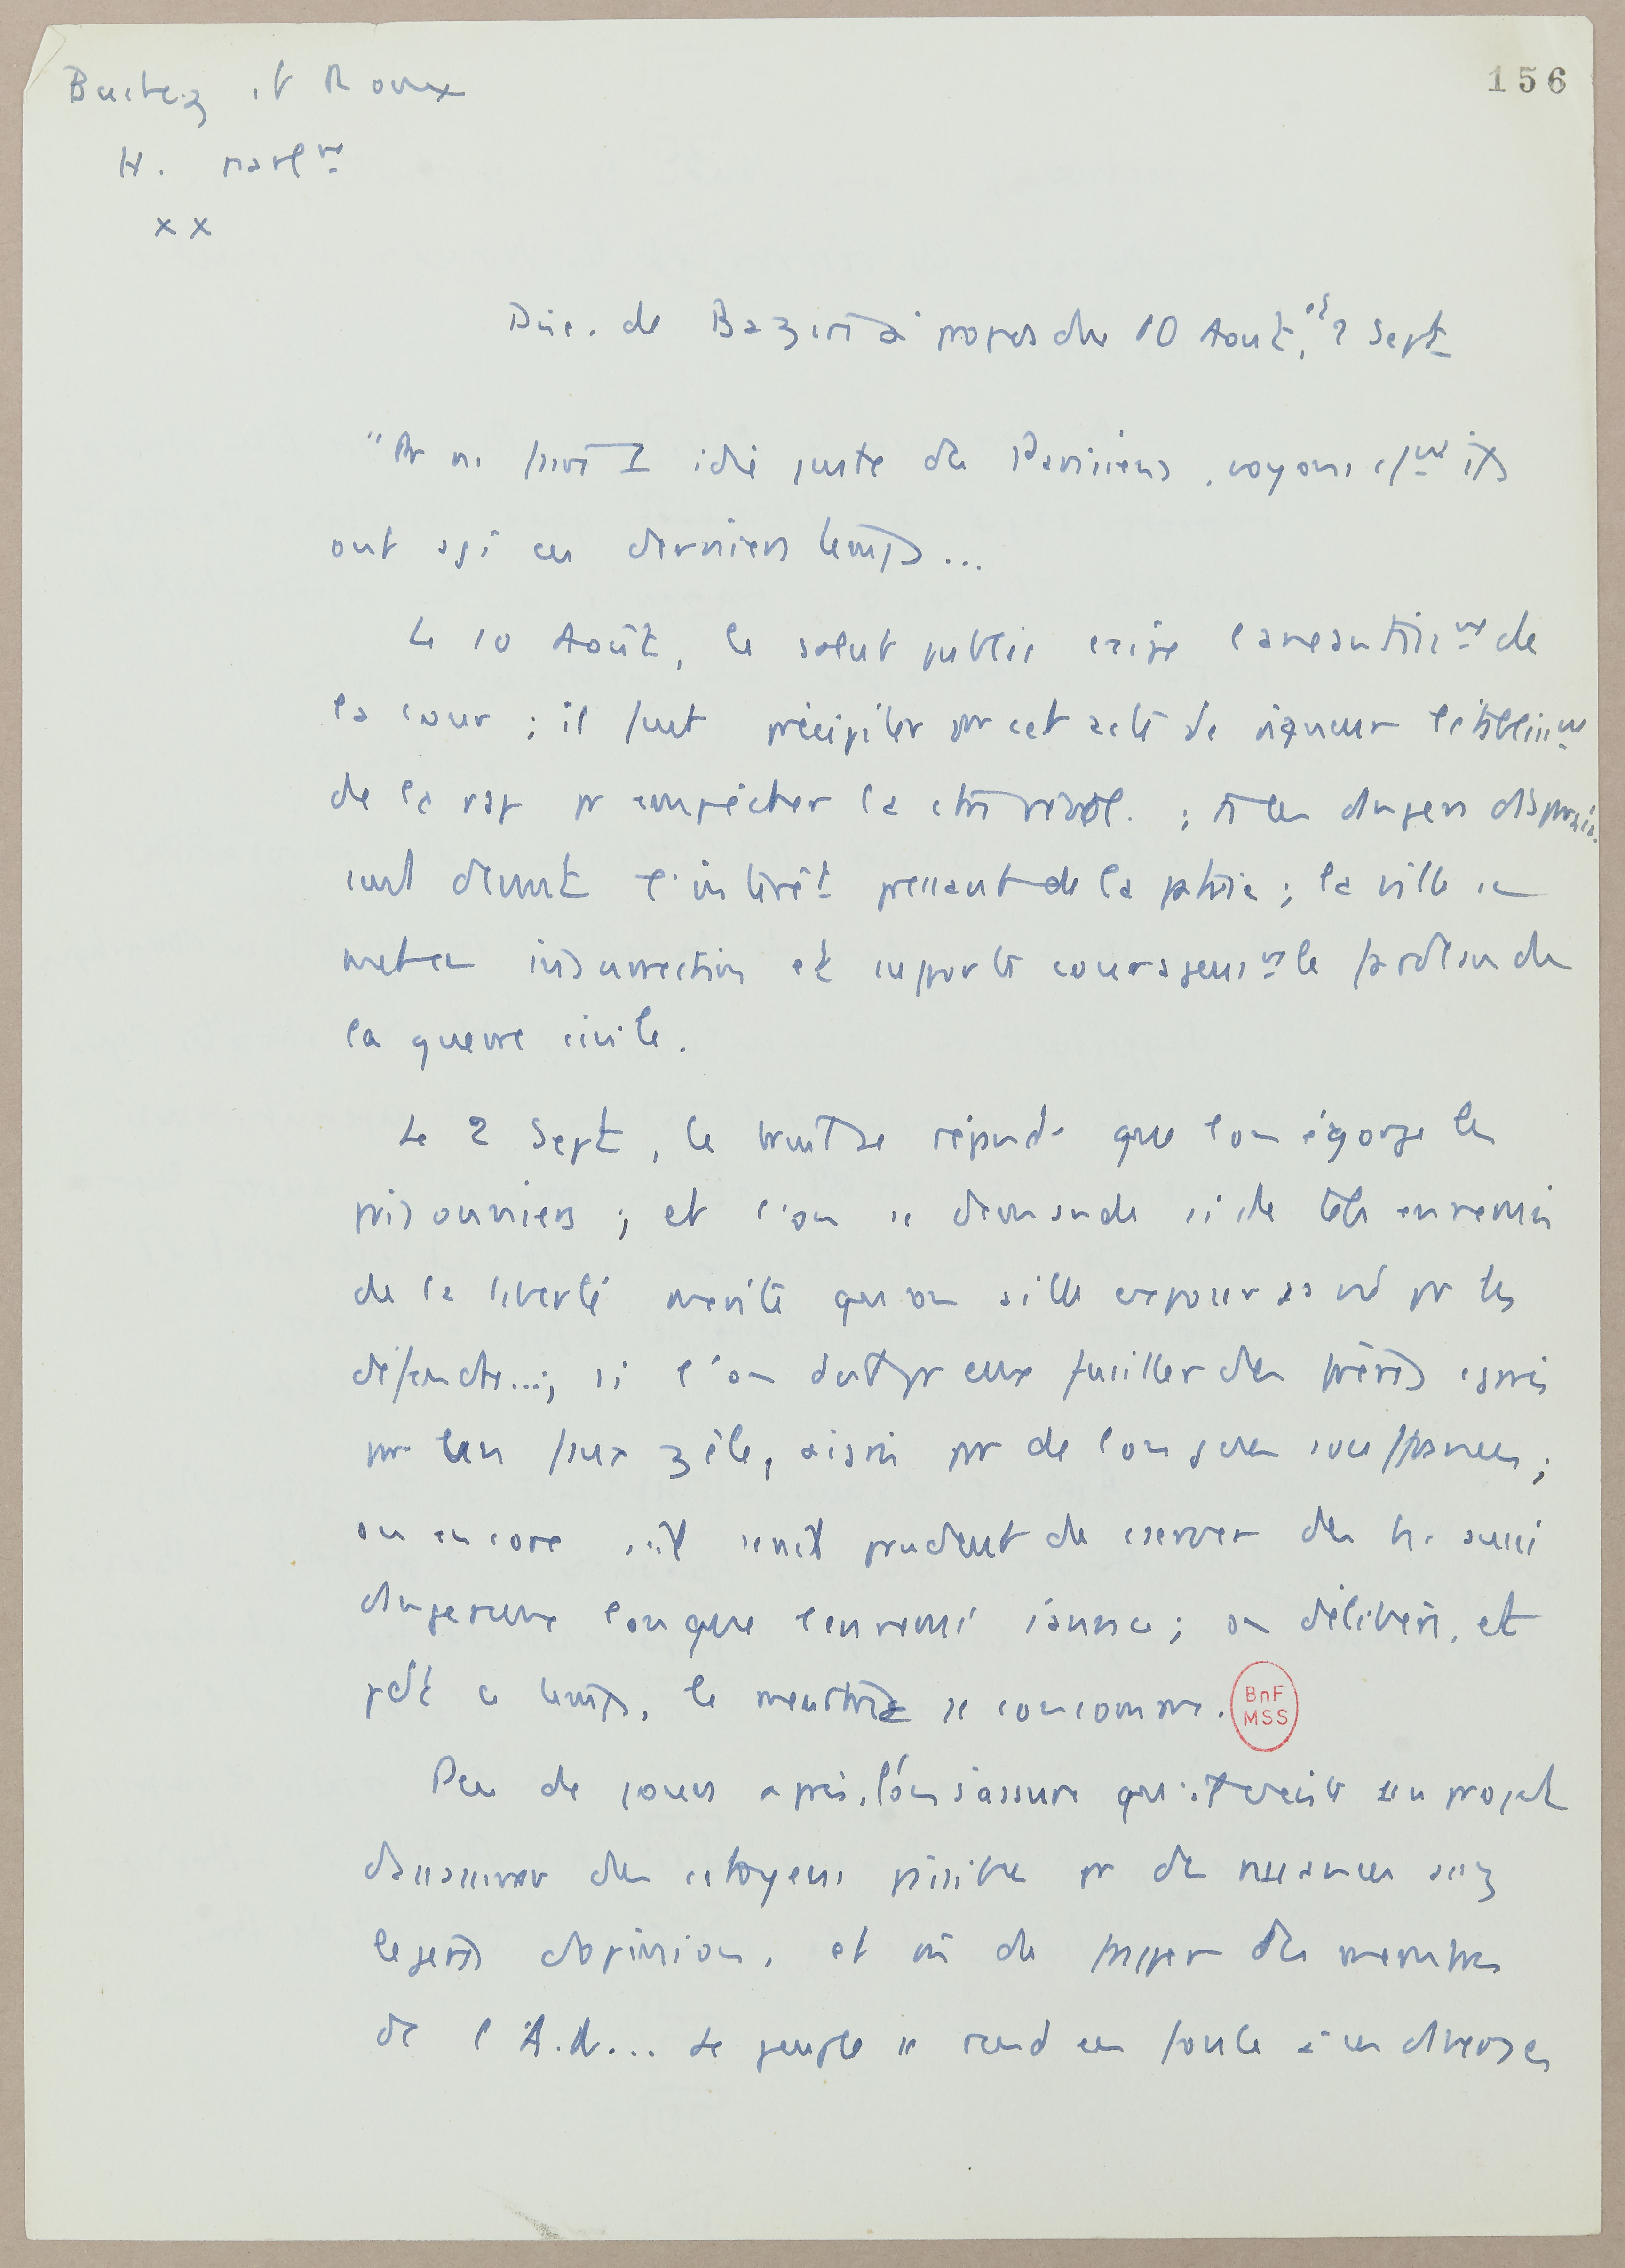 Buchez et Roux
156
H. Parl re
x x
Disc. de Bazire à propos du 10 Août, et 2 Sept
"Pr ns faire I idée juste des Parisiens, voyons c/ me ils
ont agi ces derniers temps...
Le 10 Août, le salut public exige l'anéantiss me de
la cour ; il faut précipiter pr cet acte de vigueur l'établiss me
de la rep pr empêcher la ctre révol. ; ts les dangers disparais.
sent devant l'intérêt pressant de la patrie ; la ville se
met en insurrection et supporte courageus me le fardeau de
la guerre civile.
Le 2 Sept, le bruit se répand que l'on égorge les
prisonniers ; et l'on se demande si de tels ennemis
de la liberté mérite qu'on aille exposer sa vie pr les
défendre... ; si l'on doit pr eux fusiller des frères égarés
pr leur faux zèle, aigris pr de longues souffrances ;
ou encore s'il serait prudent de conserver des h. aussi
dangereux lorsque l'ennemi s'avance ; on délibère, et
pdt ce temps, le meurtre se consomme.
BnF
MSS
Peu de jours après, l'on s'assure qu'il existe un projet
d'assassiner des citoyens paisibles pr des nuances assez
légères d'opinion, et mê de frapper des membres
de l'A.N... Le peuple se rend en foule à ces diverses